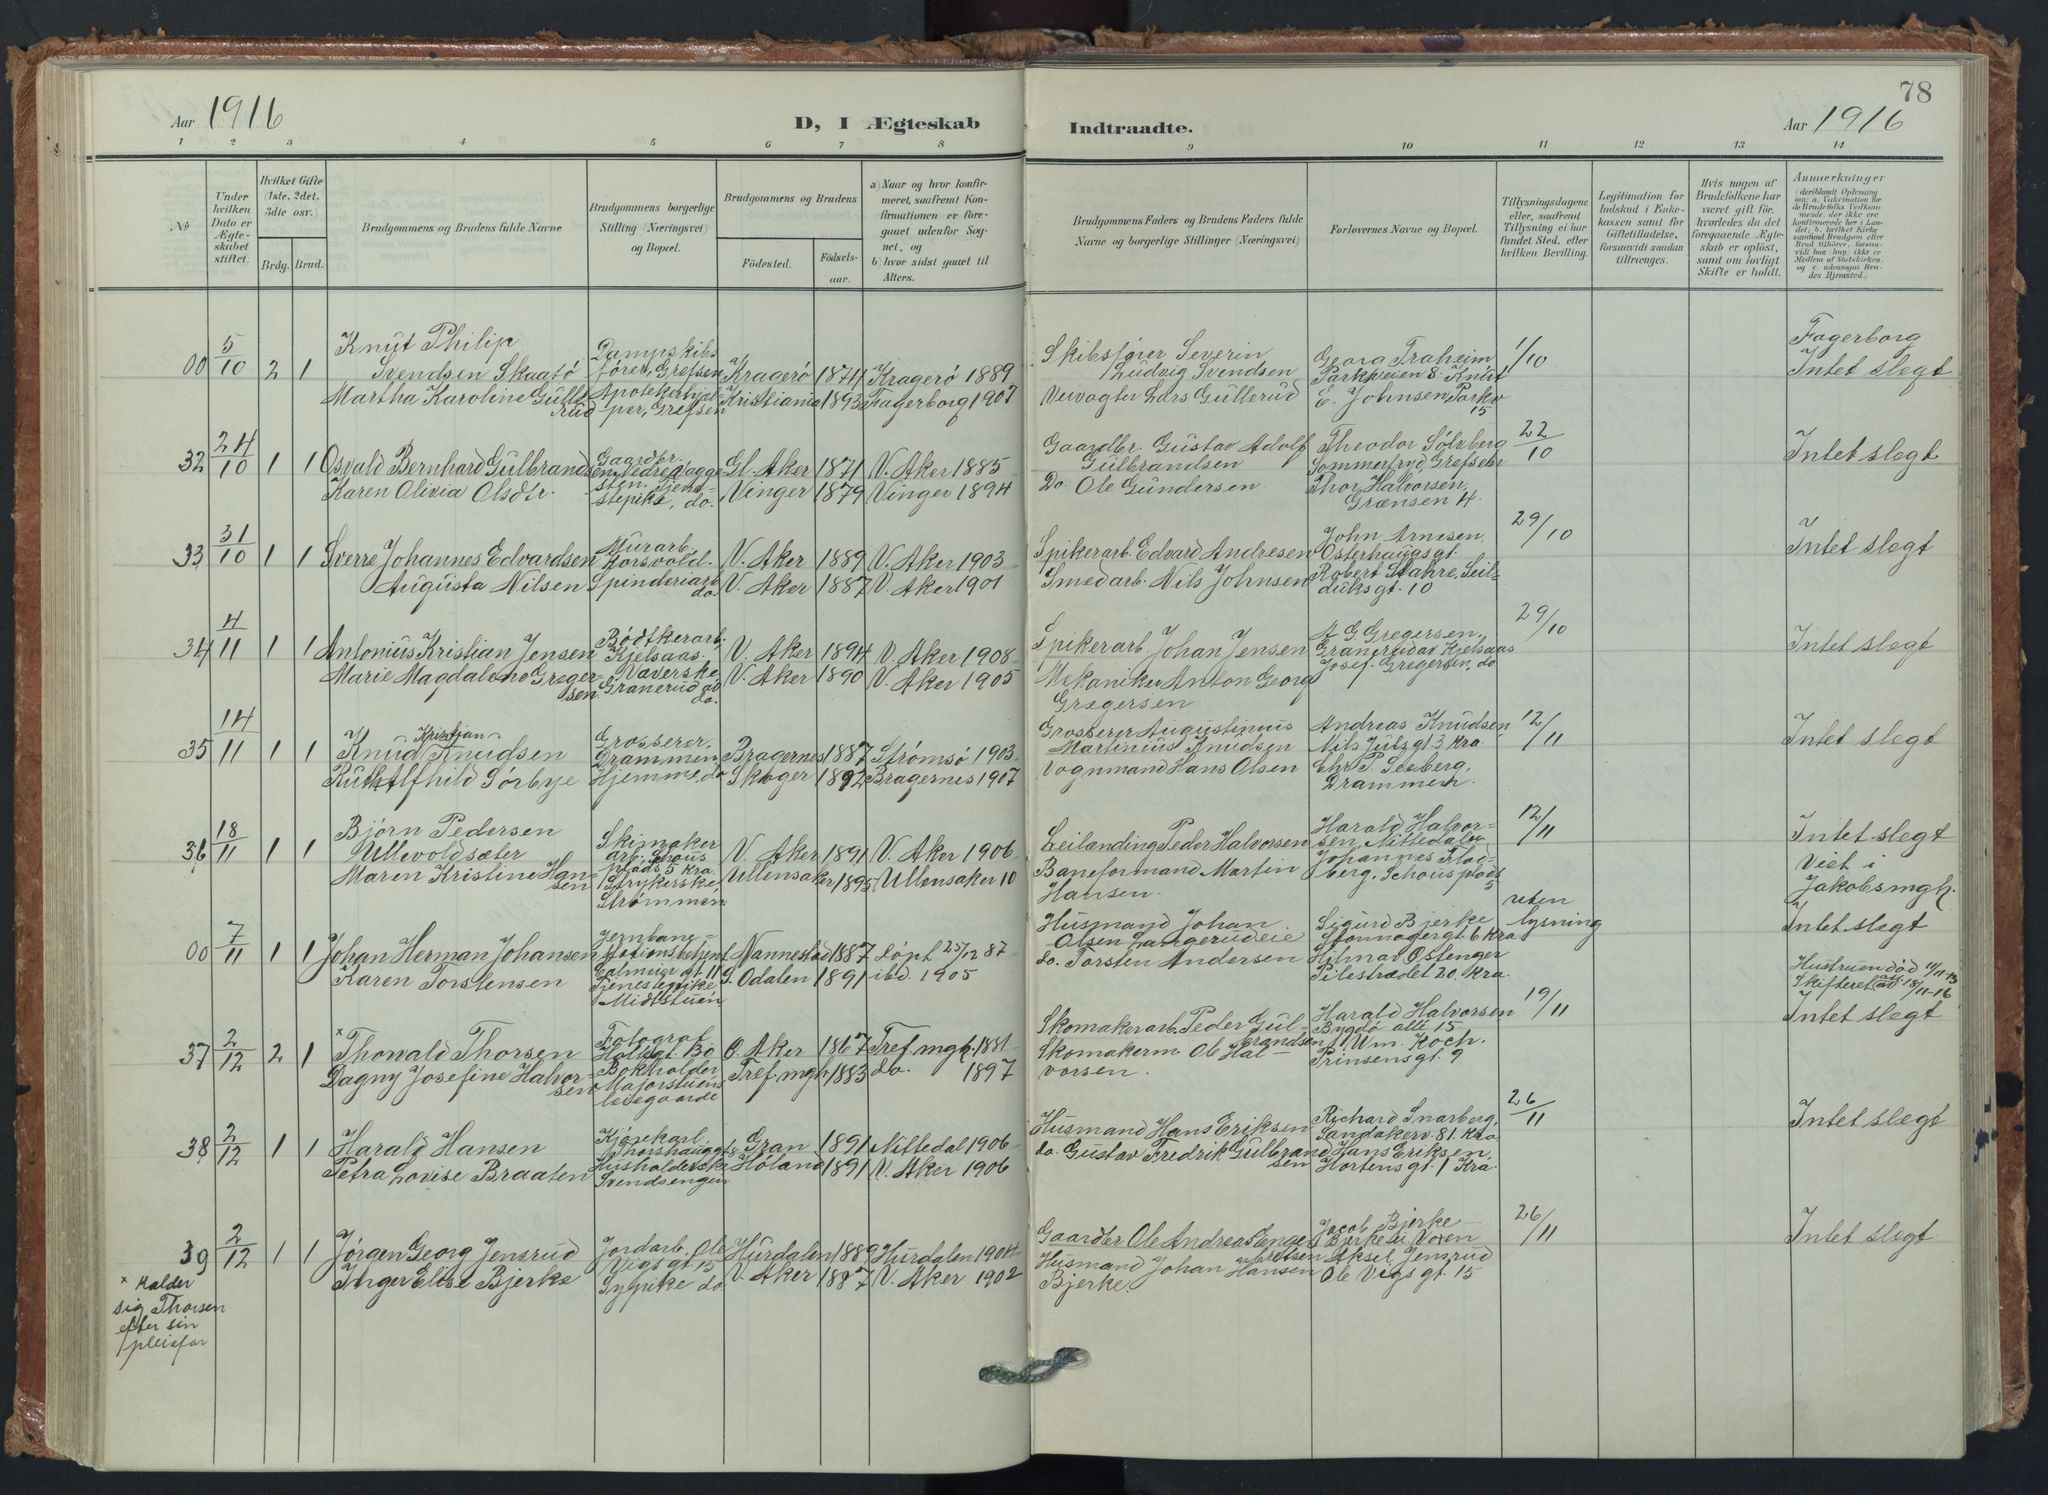 78
Aar 1916
D, I Ægteskab
Indtraadte.
Aar 1916
1 2 3 4 5 6 7 8 9 10 11 12 13 14
No
Under hvilken Dato er Ægteskabet stiftet.
Hvilket Gifte (1ste, 2det, 3die osv.)
Brdg. Brud.
Brudgommens og Brudens fulde Navne
Brudgommens borgerlige Stilling (Næringsvei) og Bopæl.
Brudgommens og Brudens
Födested.
Födselsaar.
a) Naar og hvor konfirmeret, saafremt Konfirmationen er foregaaet udenfor Sognet, og
b) hvor sidst gaaet til Alters.
Brudgommens Faders og Brudens Faders fulde Navne og borgerlige Stillinger (Næringsvei)
Forlovernes Navne og Bopæl.
Tillysningsdagene eller, saafremt Tillysning ei har fundet Sted, efter hvilken Bevilling.
Legitimation for Indskud i Enkekassen samt for Giftetilladelse, forsaavidt saadan tiltrænges.
Hvis nogen af Brudefolkene har været gift för, hvorledes da det foregaaende Ægteskab er oplöst, samt om lovligt Skifte er holdt.
Anmærkninger
(deriblandt Oplysning om: a. Vaccination för de Brudefolks Vedkommende, der ikke ere konfirmerede her i Landet; b. hvilket Kirkesamfund Brudgom eller Brud tilhörer, forsaavidt han (hun) ikke er Medlem af Statskirken, og c. udensogns Brudes Hjemsted.)
00 5/10 2 1
Knut Philip
Svendsen Skaatö
Martha Karoline Gullerud
Dampskibsförer, Grefsen
Apotekerhjælper, Grefsen
Kragerö 1874 Kragerö 1889
Kristiania 1893 Fagerborg 1907
Skibsförer Severin
Ludvig Svendsen
Veivogter Lars Gullerud
Georg Traheim
Parkveien 8 Knut
E. Johnsen, Parkv
15
1/10
Fagerborg
Intet slegt
32 24/10 1 1
Osvald Bernhard Gulbrandsen
Karen Olivia Olsdtr.
Gaardbr.
Tjenestepike, do.
Gl. Aker 1871 V. Aker 1885
Vinger 1879 Vinger 1894
Gaardbr. Gustav Adolf
Gulbrandsen
Do. Ole Gundersen
Theodor Sölvberg
Sommerfryd, Grefsen
Thor Halvorsen,
Grænsen 4.
22/10
Intet slegt
33 31/10 1 1
Sverre Johannes Edvardsen
Augusta Nilsen
Murarb.
Korsvold.
Spinderiarb
do.
V. Aker 1889 V. Aker 1903
V. Aker 1887 V. Aker 1901
Spikerarb. Edvard Andresen
Smedarb. Nils Johnsen
John Arnesen,
Osterhaugsgt.
Robert Stahre, Seilduksgt. 10
29/10
Intet slegt
34 4/11 1 1
Antonius Kristian Jensen
Marie Magdalene Gregersen
Bödtkerarb.
Kjelsaas.
Væverske
Granerud av
do.
V. Aker 1894 V. Aker 1908
V. Aker 1890 V. Aker 1905
Spikerarb. Johan Jensen
Mekaniker Anton Georg
Gregersen
A. G. Gregersen,
Granerud av Kjelsaas
Josef Gregersen, do
29/10
Intet slegt
35 14/11 1 1
Kristian
Knud Knudsen
Ruth Alfhild Sörbye
Grosserer,
Drammen
Hjemme, do
Bragernes 1887 Strömsö 1903
Skoger 1892 Bragernes 1907
Grosserer Augustinius
Martinius Knudsen
Vognmand Hans Olsen
Andreas Knudsen
Nils Juls gt. 3 Kra.
Chr. P. Seeberg,
Drammen.
12/11
Intet slegt
36 18/11 1 1
Björn Pedersen
Ullevoldsæter
Maren Kristine Hansen
Skimaker
arb. Schous
plads 5 Kra
Strykerske,
Strömmen
V. Aker 1891 V. Aker 1906
Ullensaker 1895 Ullensaker 10
Leilænding Peder Halvorsen
Baneformand Martin
Hansen.
Harald Halvorsen, Nittedalen
Johannes Flodberg, Schousplads
5
12/11
Intet slegt
Viet i
Jakobs mgh.
00 7/11 1 1
Johan Herman Johansen
Karen Torstensen
Jernbanestationsbetjent
Galmeier gt. 11
Tjenestepike
Midtstuen
Nannestad 1887 Döpt 25/12 87
S. Odalen 1891 ibd. 1905
Husmand Johan
Olsen Langerudeie
do. Torsten Andersen
Sigurd Bjerke
Stonnagergt 6 Kra
Hilmar Ostenger
Pilestrædet 20. Kra
uten
lysning
Intet slegt
37 2/12 2 1
x Thorvald Thorsen
Dagny Josefine Halvorsen
Fotograf
Holtegt 30
Bokholder
Majorstuens
leiegaarde
Ö. Aker 1867 Tref. mgh. 1881
Tref. mgh 1883 do. 1897
Skomakerarb. Peder Gulbrandsen
Skomakerm Ole Halvorsen.
Harald Halvorsen
Bygdö alle 15
Wm. Koch.
Prinsens gt. 9
19/11
Hustruen död 11/11-13
Skifteret att av 18/11-16
Intet slegt
38 2/12 1 1
Harald Hansen
Petra Lovise Braaten
Kjörekarl.
Thorshauggt 8
Husholderske
Svendsengen
Gran 1891 Nittedal 1906
Höland 1891 V. Aker 1906
Husmand Hans Eriksen
do. Gustav Fredrik Gulbrandsen
Richard Snarberg,
Sandakerv. 81. Kra
Hans Eriksen,
Hortensgt. 1 Kra
26/11
Intet slegt
39 2/12 1 1
Jörgen Georg Jensrud
Inger Elise Bjerke
Jordarb. Ole
Vigs gt 15
Sypike do
Hurdalen 1889 Hurdalen 1904
V. Aker 1887 V. Aker 1902
Gaardbr Ole Andreas Engebretsen
Husmand Johan Hansen
Bjerke.
Jacob Bjerke
Bjerke i Voxen
Aksel Jensrud
Ole Vigs gt. 15
26/11
Intet slegt
x Kalder
sig Thorsen
efter sin
pleiefar